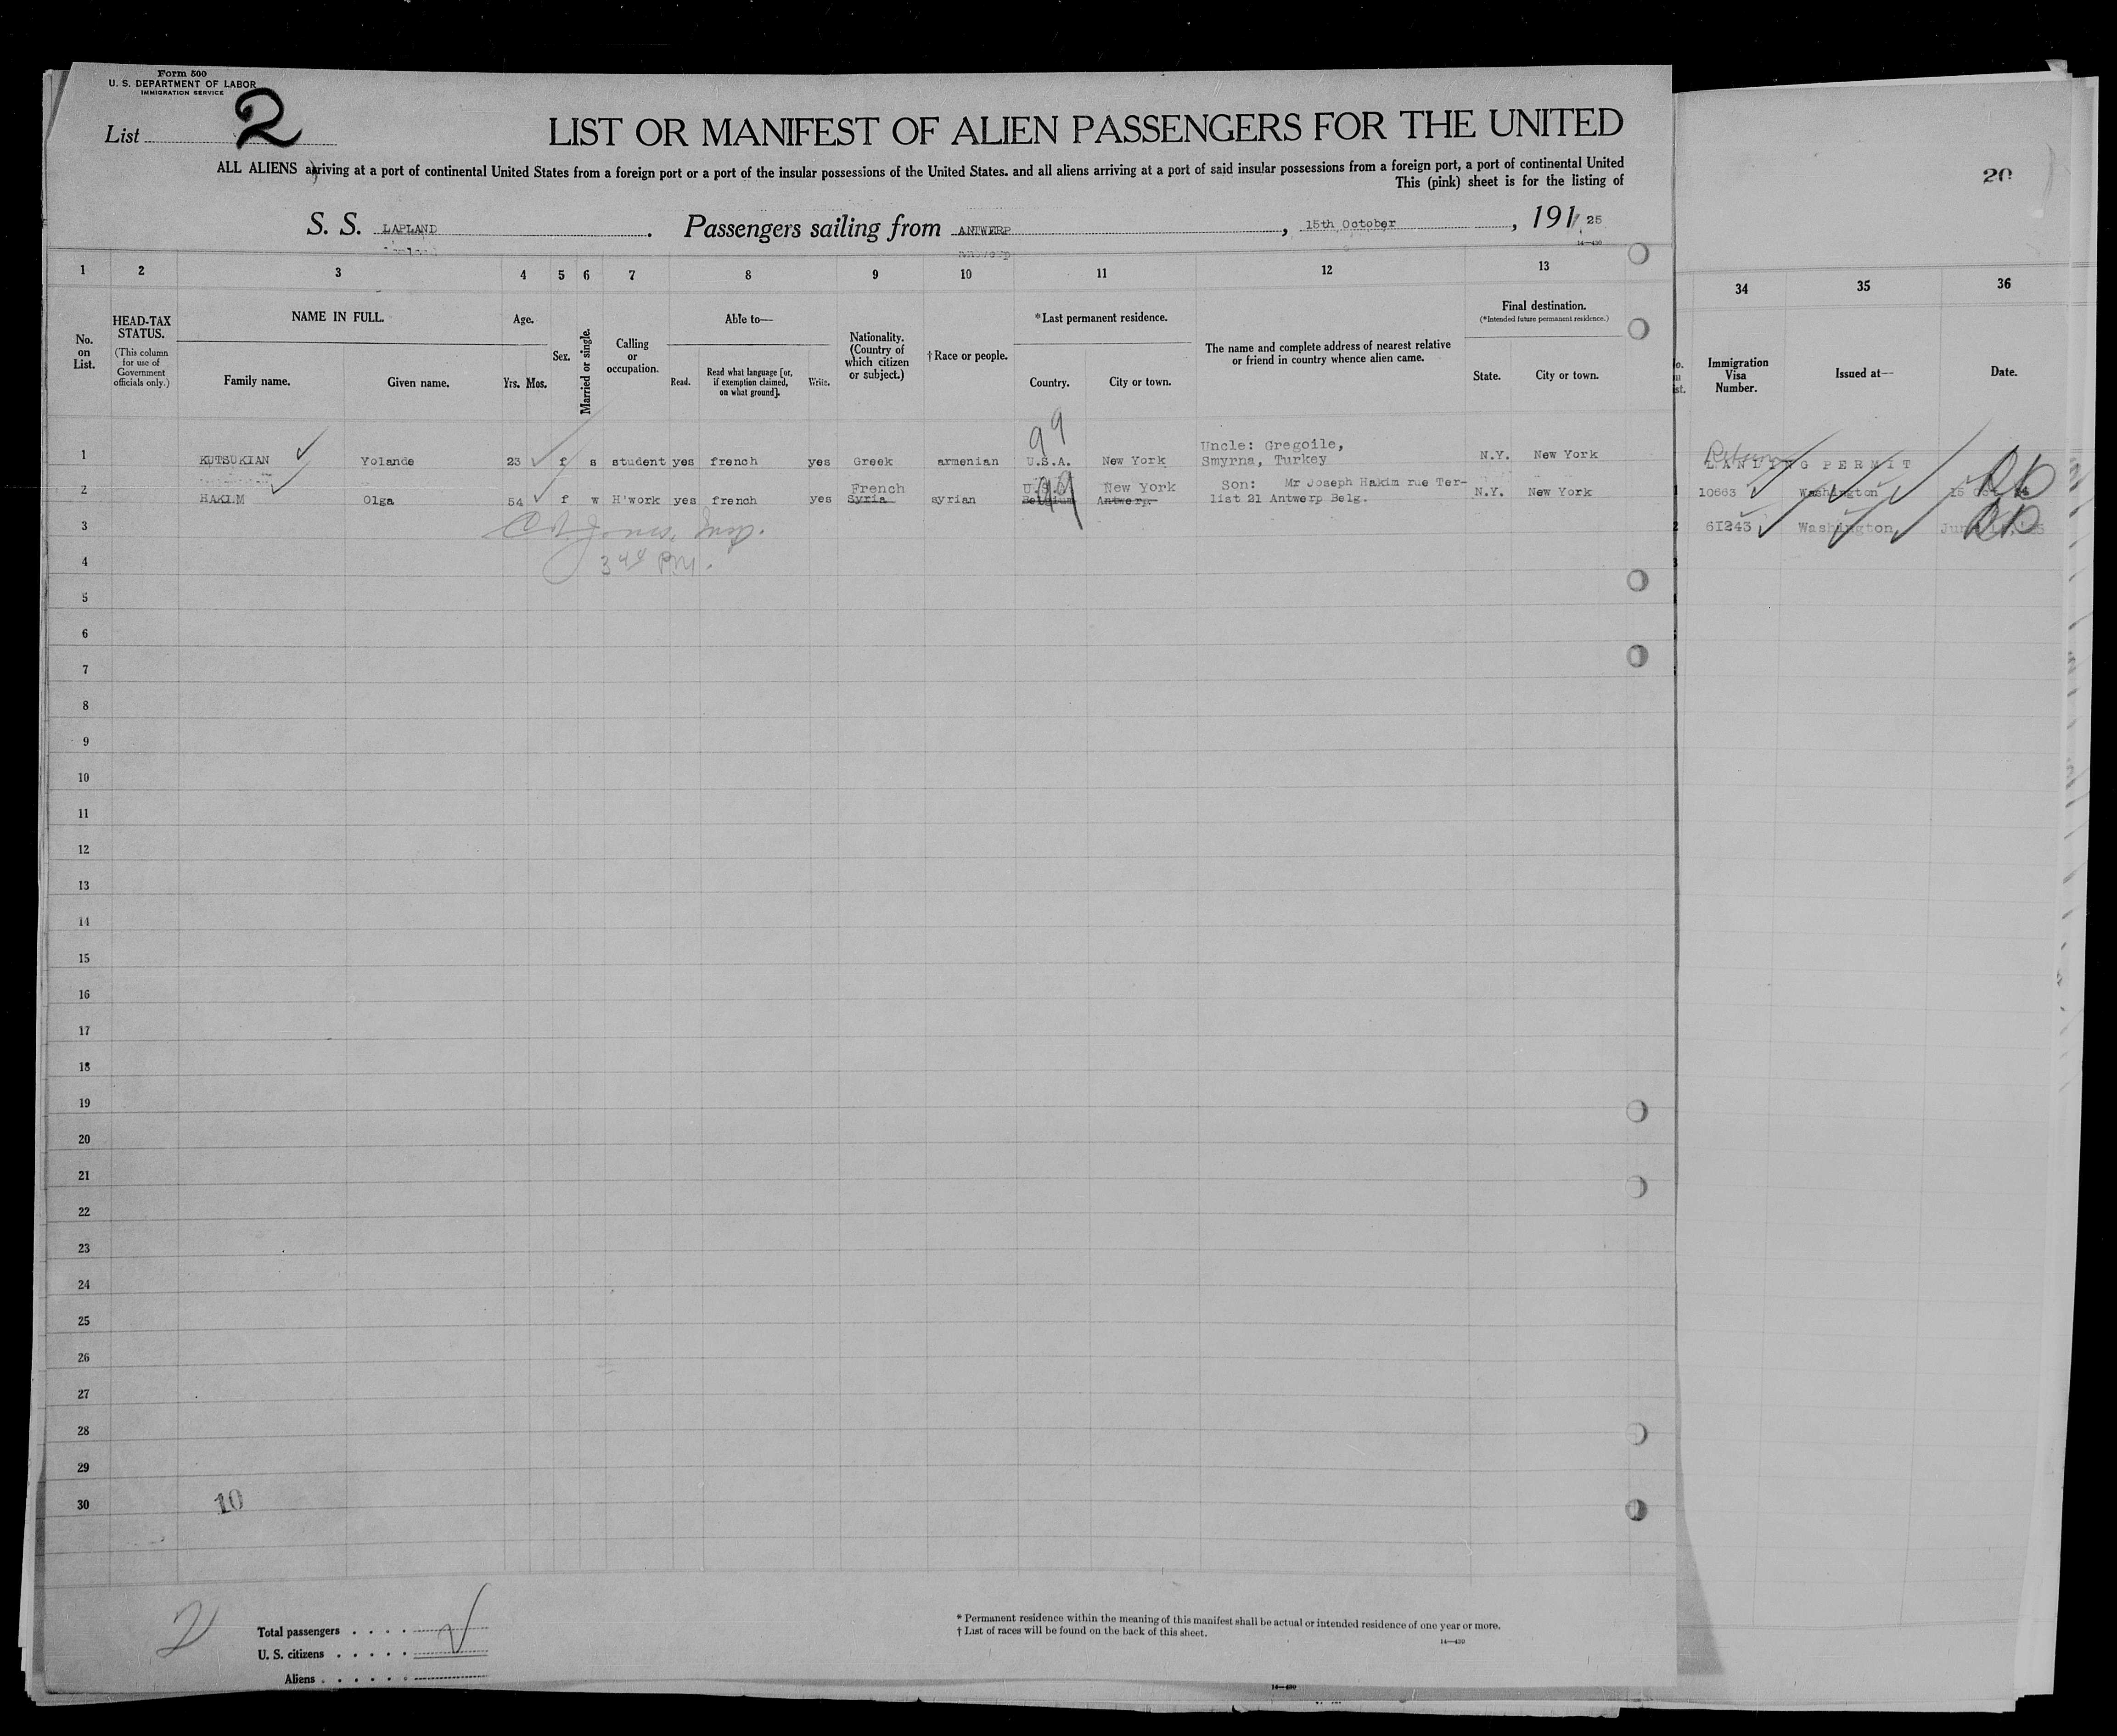 Form 500
U. S. DEPARTMENT OF LABOR
IMMIGRATION SERVICE
List 2
LIST OR MANIFEST OF ALIEN PASSENGERS FOR THE UNITED
ALL ALIENS arriving at a port of continental United States from a foreign port or a port of the insular possessions of the United States. and all aliens arriving at a port of said insular possessions from a foreign port, a port of continental United
This (pink) sheet is for the listing of
20
S. S. LAPLAND. Passengers sailing from ANTWERP, 15th October, 191 25
14—430
1 2 3 4 5 6 7 8 9 10 11 12 13 34 35 36
No. on List.
HEAD-TAX STATUS.
(This column for use of Government officials only.)
NAME IN FULL.
Family name. Given name.
Age.
Yrs. Mos.
Sex.
Married or single.
Calling or occupation.
Able to—
Read. Read what language [or, if exemption claimed, on what ground]. Write.
Nationality. (Country of which citizen or subject.)
†Race or people.
*Last permanent residence.
Country. City or town.
The name and complete address of nearest relative or friend in country whence alien came.
Final destination.
(*Intended future permanent residence.)
State. City or town.
Immigration Visa Number.
Issued at—
Date.
99
1 KUTSUKIAN Yolande 23 f s student yes french yes Greek armenian U.S.A. New York Uncle: Gregoile, Smyrna, Turkey N.Y. New York
LANDING PERMIT
2 HAKIM Olga 54 f w H'work yes french yes French Syria syrian U.S.A. Belgium New York Antwerp Son: Mr Joseph Hakim rue Ter-
list 21 Antwerp Belg. N.Y. New York
1 10663 Washington
2 61243 Washington
3
4
5
6
7
8
9
10
11
12
13
14
15
16
17
18
19
20
21
22
23
24
25
26
27
28
29
30
10
2
Total passengers . . . .
U. S. citizens . . . . .
Aliens . . . . . .
* Permanent residence within the meaning of this manifest shall be actual or intended residence of one year or more.
† List of races will be found on the back of this sheet.
14—430
14—430